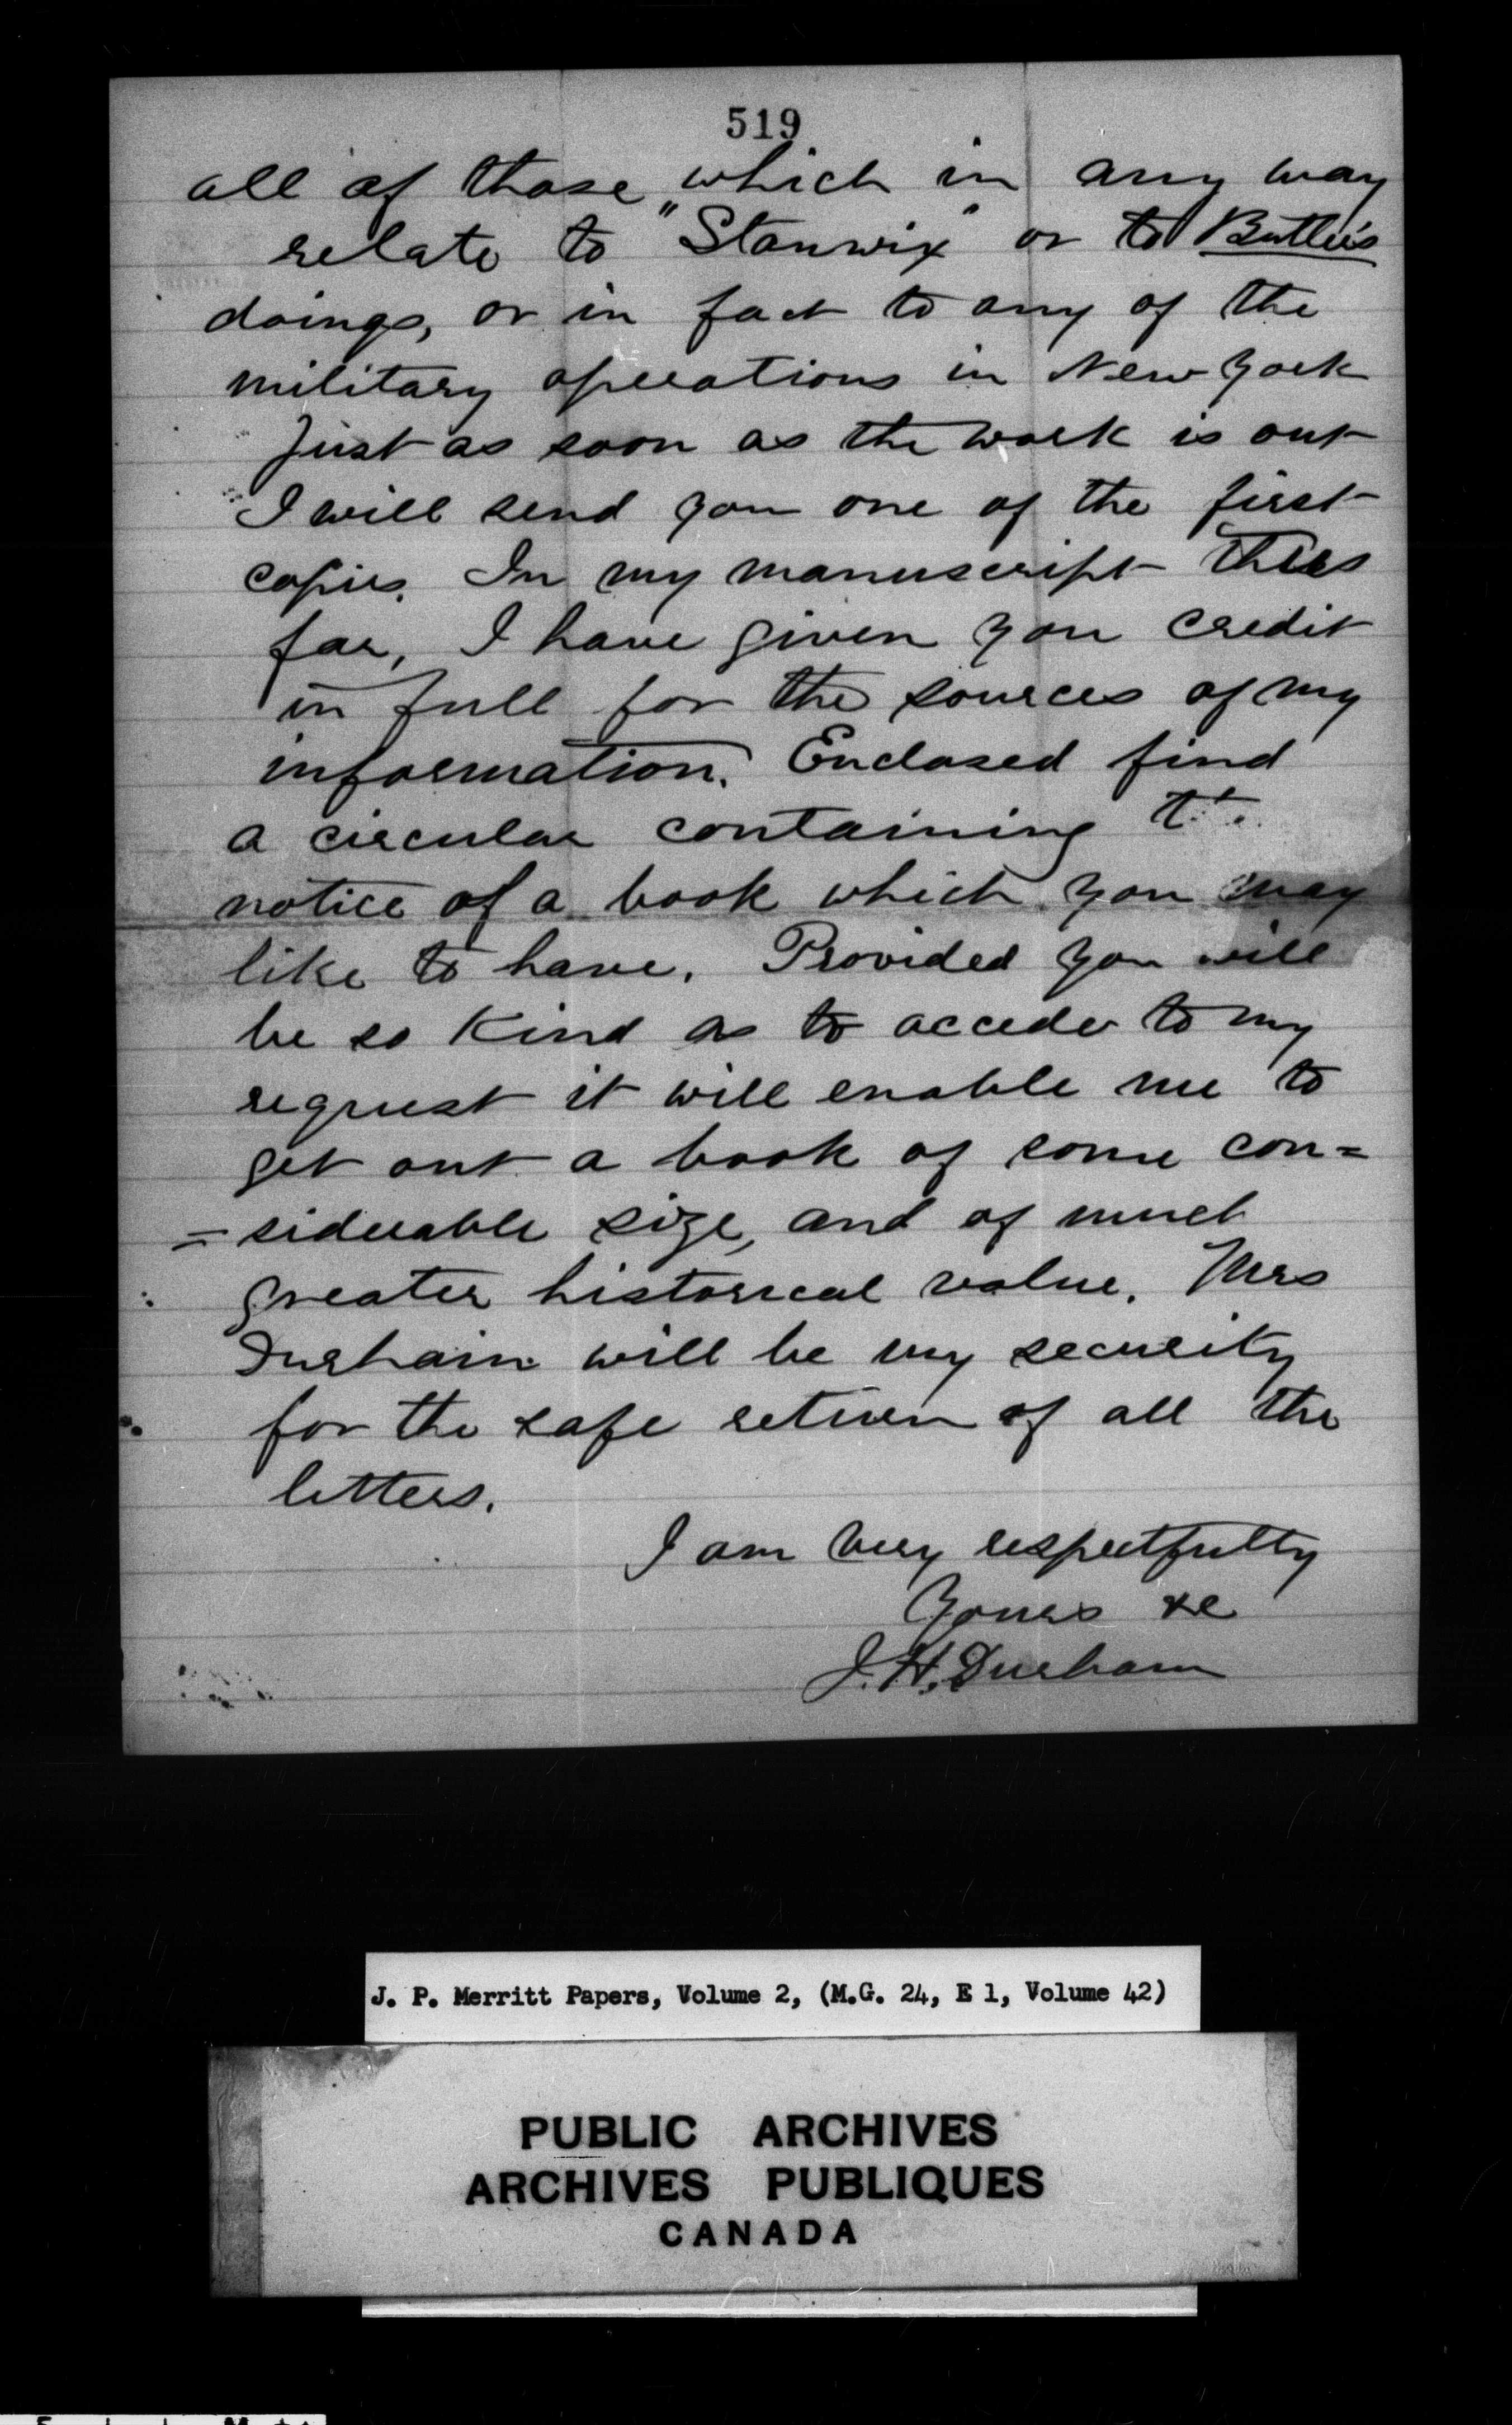 519
all of those which in any way
relate to "Stanwix" or to Butler's
doings, or in fact to any of the
military operations in New York
Just as soon as the work is out
I will send you one of the first
copies. In my manuscript thus
far, I have given you credit
in full for the sources of my
information. Enclosed find
a circular containing
notice of a book which you may
like to have. Provided you will
be so kind as to accede to my
request it will enable me to
get out a book of some con=
=siderable size, and of much
greater historical value. Mrs
Durham will be my security
for the safe return of all the
letters.
I am very respectfully
Yours &c
J. H. Durham
J. P. Merritt Papers, Volume 2, (M.G. 24, E 1, Volume 42)
PUBLIC ARCHIVES
ARCHIVES PUBLIQUES
CANADA